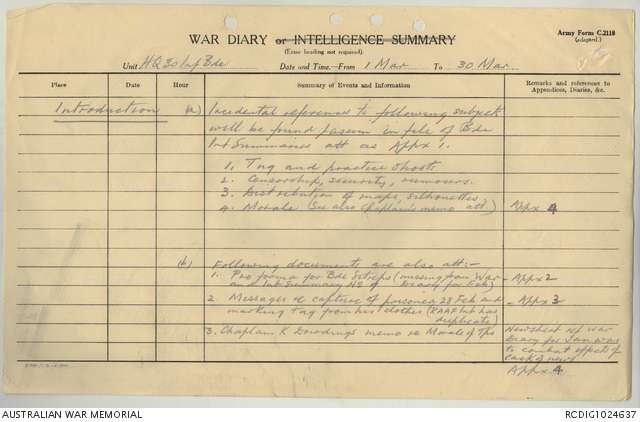 Army Form C.2118
(adapted.)
WAR DIARY or INTELLIGENCE SUMMARY
(Erase heading not required).
Unit HQ 30 Inf Bde Date and Time.—From 1 Mar To 30 Mar
Place Date Hour Summary of Events and Information Remarks and references to Appendices, Diaries, &c.
Introduction (a) Incidental reference to following subject
will be found passim in file of Bde
Int Summaries att as Appx 1.
1. Tng and practice shoots
2. Censorship, security, rumours.
3. Distribution of maps, silhouettes
4. Morale (See also Chaplain's memo att) Appx 4
(b) Following documents are also att:-
1. Pro forma for Bde Sitreps (missing from War
and Int Summary Diary for Feb) Appx 2
2 Messages re capture of prisoner 28 Feb and
marking tag from his clothes (RAAF Int has
duplicate) Appx 3
3. Chaplain K memo re Morale of Tps
Newsheet ref War
Diary for Jan was
to combat effects of
lack of news
Appx 4
AUSTRALIAN WAR MEMORIAL
RCDIG1024637